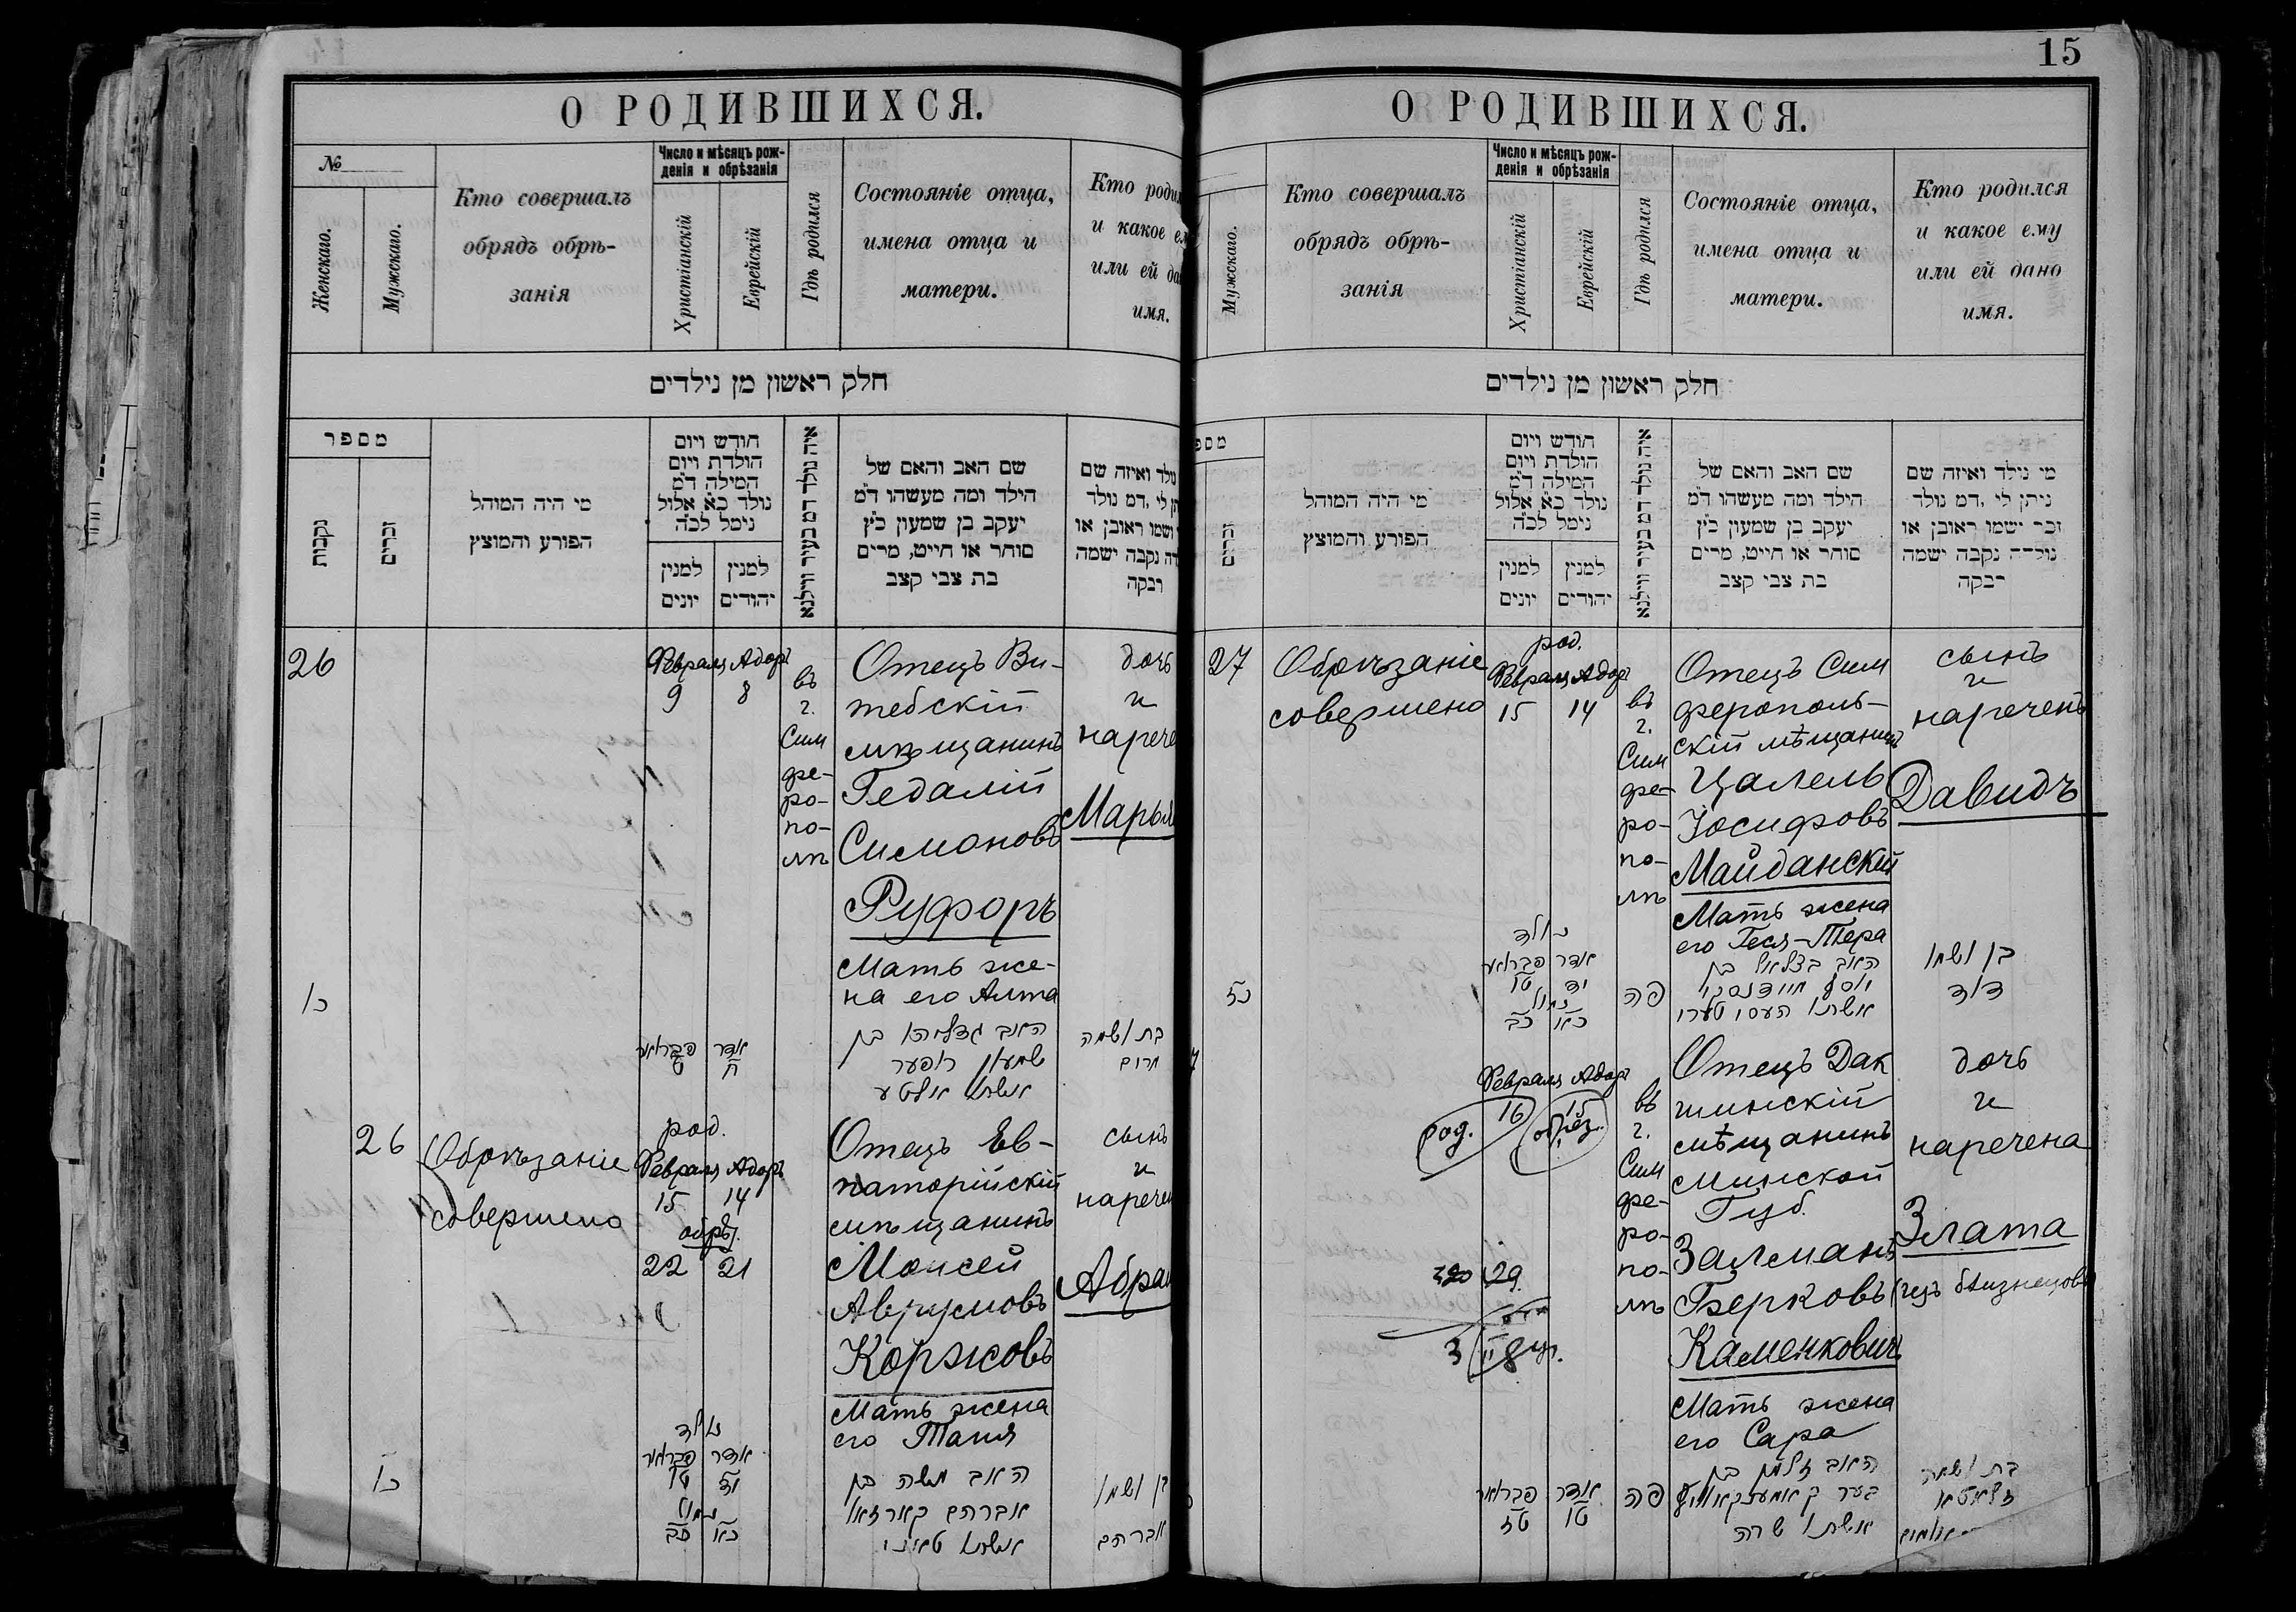 15
О РОДИВШИХСЯ.
№
Женскаго.
Мужскаго.
Кто совершалъ
обрядъ обрѣ-
занія
Число и мѣсяцъ рож-
денія и обрѣзанія
Христіанскій
Еврейскій
Гдѣ родился
Состояніе отца,
имена отца и
матери.
Кто роди
и какое ем
или ей да
имя.
חלק ראשון מן נילדים
מספר
נקבות
זכרים
מי היה המוהל
הפורע והמוצץ
חודש ויום
הולדת ויום
המילה ד״מ
נולד כ״א אלול
נימל לכ״ה
למנין
יונים
למנין
יהודים
איה נולד דמ בעיר ווילנא
שם האב והאם של
הילד ומה מעשהו ד״מ
יעקב בן שמעון כ״ץ
סוחר או חייט, מרים
בת צבי קצב
נולד ואיזה שם
תן לי ,דמ נולד
ושמו ראובן או
דה נקבה ישמה
רבקה
26
Февраля Адоръ
9 8
въ
г.
Сим
фе-
ро-
по-
лѣ
Отецъ Ви-
тебскій
мѣщанинъ
Гедалій
Симоновъ
Руфоръ
Мать же-
на его Алта
дочь
и
нарече
Марья
כו
פברואר
ט
אדר
ח
האב גדליהו בן
שמעון רופער
אשתו אלטע
בת ושמה
מרים
26
Обрѣзаніе
совершено
род.
Февраля Адоръ
15 14
обрѣз.
22 21
Отецъ Ев-
паторійскій
мѣщанинъ
Моисей
Аврумовъ
Коржовъ
Мать жена
его Таня
сынъ
и
наречен
Абрам
כו
נולד
פברואר אדר
טו יד
נמול
כב כא
האב משה בן
אברהם קארזאוו
אשתו טאני
בן ושמו
אברהם
О РОДИВШИХСЯ.
Мужскаго.
Кто совершалъ
обрядъ обрѣ-
занія
Число и мѣсяцъ рож-
денія и обрѣзанія
Христіанскій
Еврейскій
Гдѣ родился
Состояніе отца,
имена отца и
матери.
Кто родился
и какое ему
или ей дано
имя.
חלק ראשון מן נילדים
מספ
זכרים
מי היה המוהל
הפורע והמוצץ
חודש ויום
הולדת ויום
המילה ד״מ
נולד כ״א אלול
נימל לכ״ה
למנין
יונים
למנין
יהודים
איה נולד דמ בעיר ווילנא
שם האב והאם של
הילד ומה מעשהו ד״מ
יעקב בן שמעון כ״ץ
סוחר או חייט, מרים
בת צבי קצב
מי נילד ואיזה שם
ניתן לי ,דמ נולד
זכר ישמו ראובן או
נולדה נקבה ישמה
רבקה
27
Обрѣзаніе
совершено
род.
Февраля Адоръ
15 14
въ
г.
Сим
фе-
ро-
по-
лѣ
Отецъ Сим
ферополь-
скій мѣщанинъ
Цалель
Іосифовъ
Майданскій
Мать жена
его Геся-Тера
сынъ
и
нареченъ
Давидъ
כז
נולד
פברואר אדר
טו יד
נמול
כב כא
פה
האב בצלאל בן
יוסף מיידנסקי
אשתו העסי טערי
בן ושמו
דוד
Февраля Адоръ
16 15
род. обрѣз.
29
въ
г.
Сим
фе-
ро-
по-
лѣ
Отецъ Док
шинскій
мѣщанинъ
Минской
Губ.
Залманъ
Берковъ
Каменковичъ
Мать жена
его Сара
дочь
и
наречена
Злата
(изъ близнецовъ)
פברואר אדר
טז טו
פה
האב זלמן בן
בער קאמענקאוויץ
אשתו שרה
בת ושמה
זלאטא